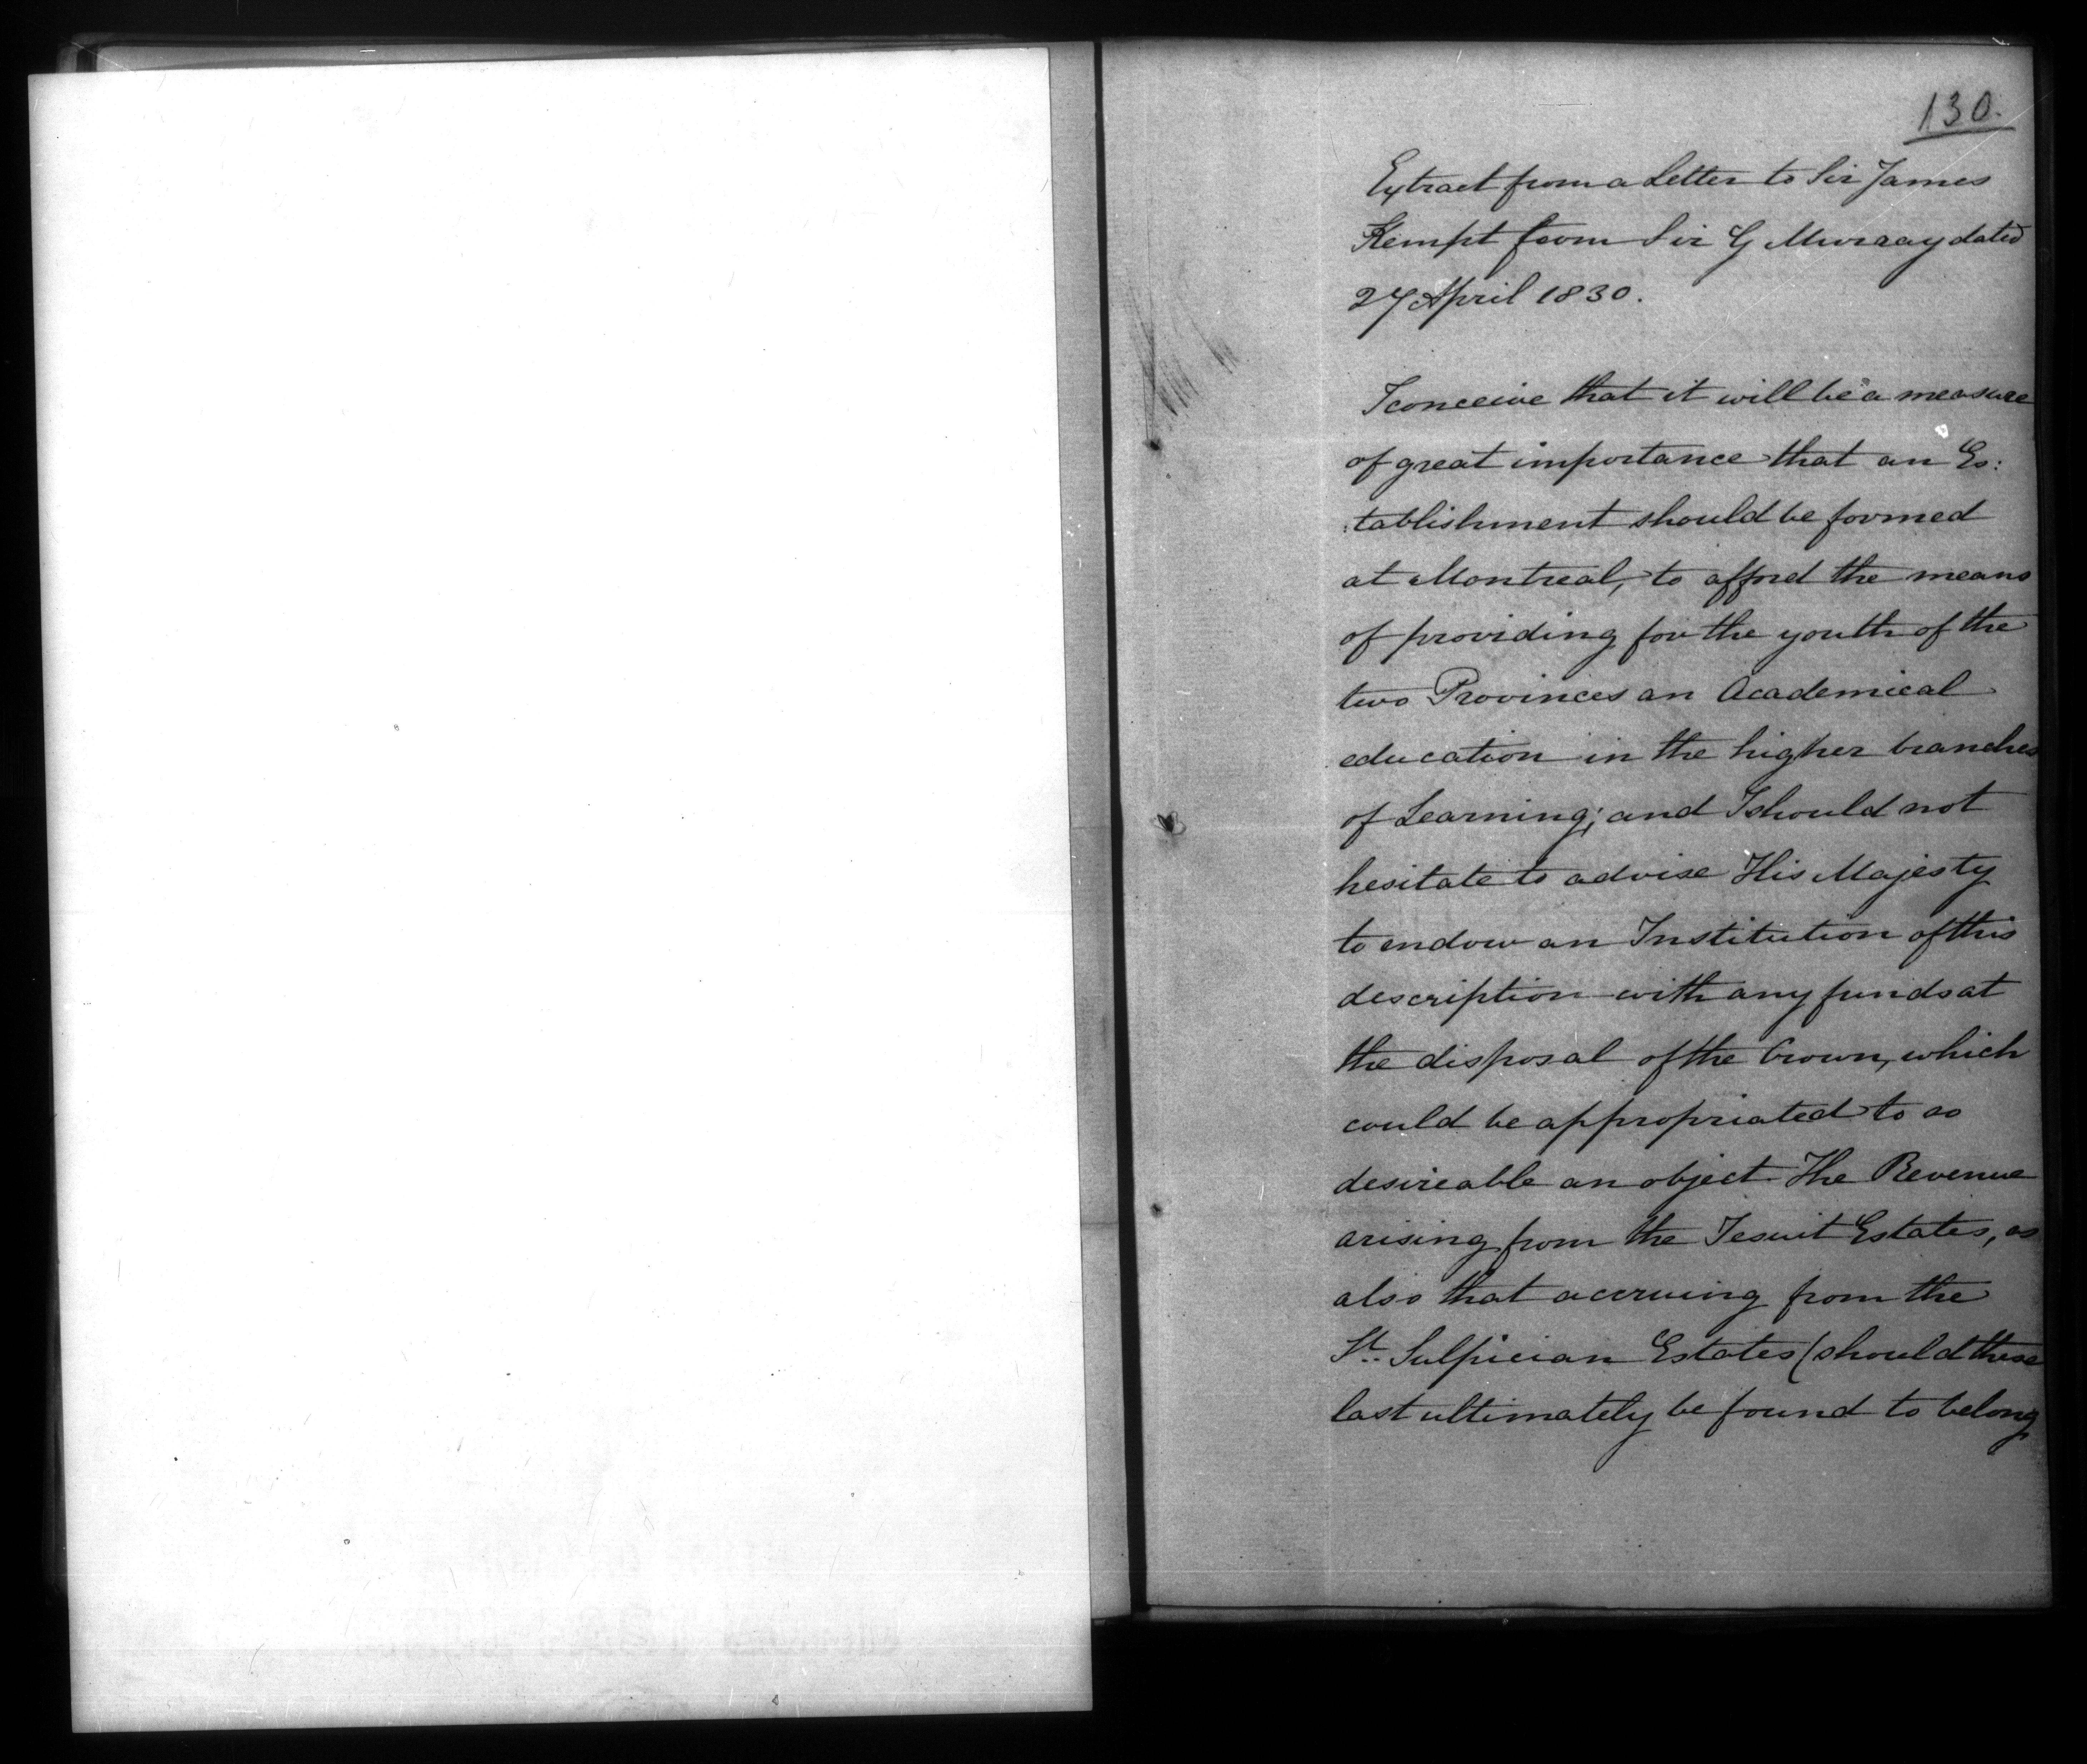 130.
Extract from a Letter to Sir James
Kempt from Sir G Murray dated
27 April 1830.
I conceive that it will be a measure
of great importance that an Es:
:tablishment should be formed
at Montreal, to afford the means
of providing for the youth of the
two Provinces an Academical
education in the higher branches
of Learning; and I should not
hesitate to advise His Majesty
to endow an Institution of this
description with any funds at
the disposal of the Crown, which
could be appropriated to so
desireable an object. The Revenue
arising from the Jesuit Estates, as
also that accruing from the
St. Sulpician Estates (should these
last ultimately be found to belong